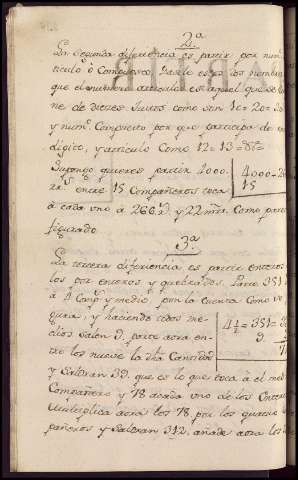 2.ª
La Segunda diferiencia es partir por num.
ticulo ó Compuesto. Darle es por los nombres
que el numero articulo es aquel que se
ne de dieces Justos como son 10= 20= 30
y num.º Compuesto por q.e participa de
digito, y articulo Como 12= 13= &.ª
Supongo quieres partir 4000
r.s entre 15 Compañeros toca
á cada uno á 266 r.s y 22 mrs. Como parece
figurado
4000=26
15
3.ª
La tercera diferiencia es partir enteros
los por enteros y quebrados. Para 351
á 4 Comp.s y medio, pon la Cuenta Como
gura, y haciendo todos me-
dios Salen 9. parte aora en-
tre los nueve la dha Cantidad
4½=351=
9.
y Saldran 39. que es lo que toca á el medio
Compañero y 78 acada uno de los Enteros
Multiplica aora los 78 por los quatro
pañeros y Saldran 312. añade aora los